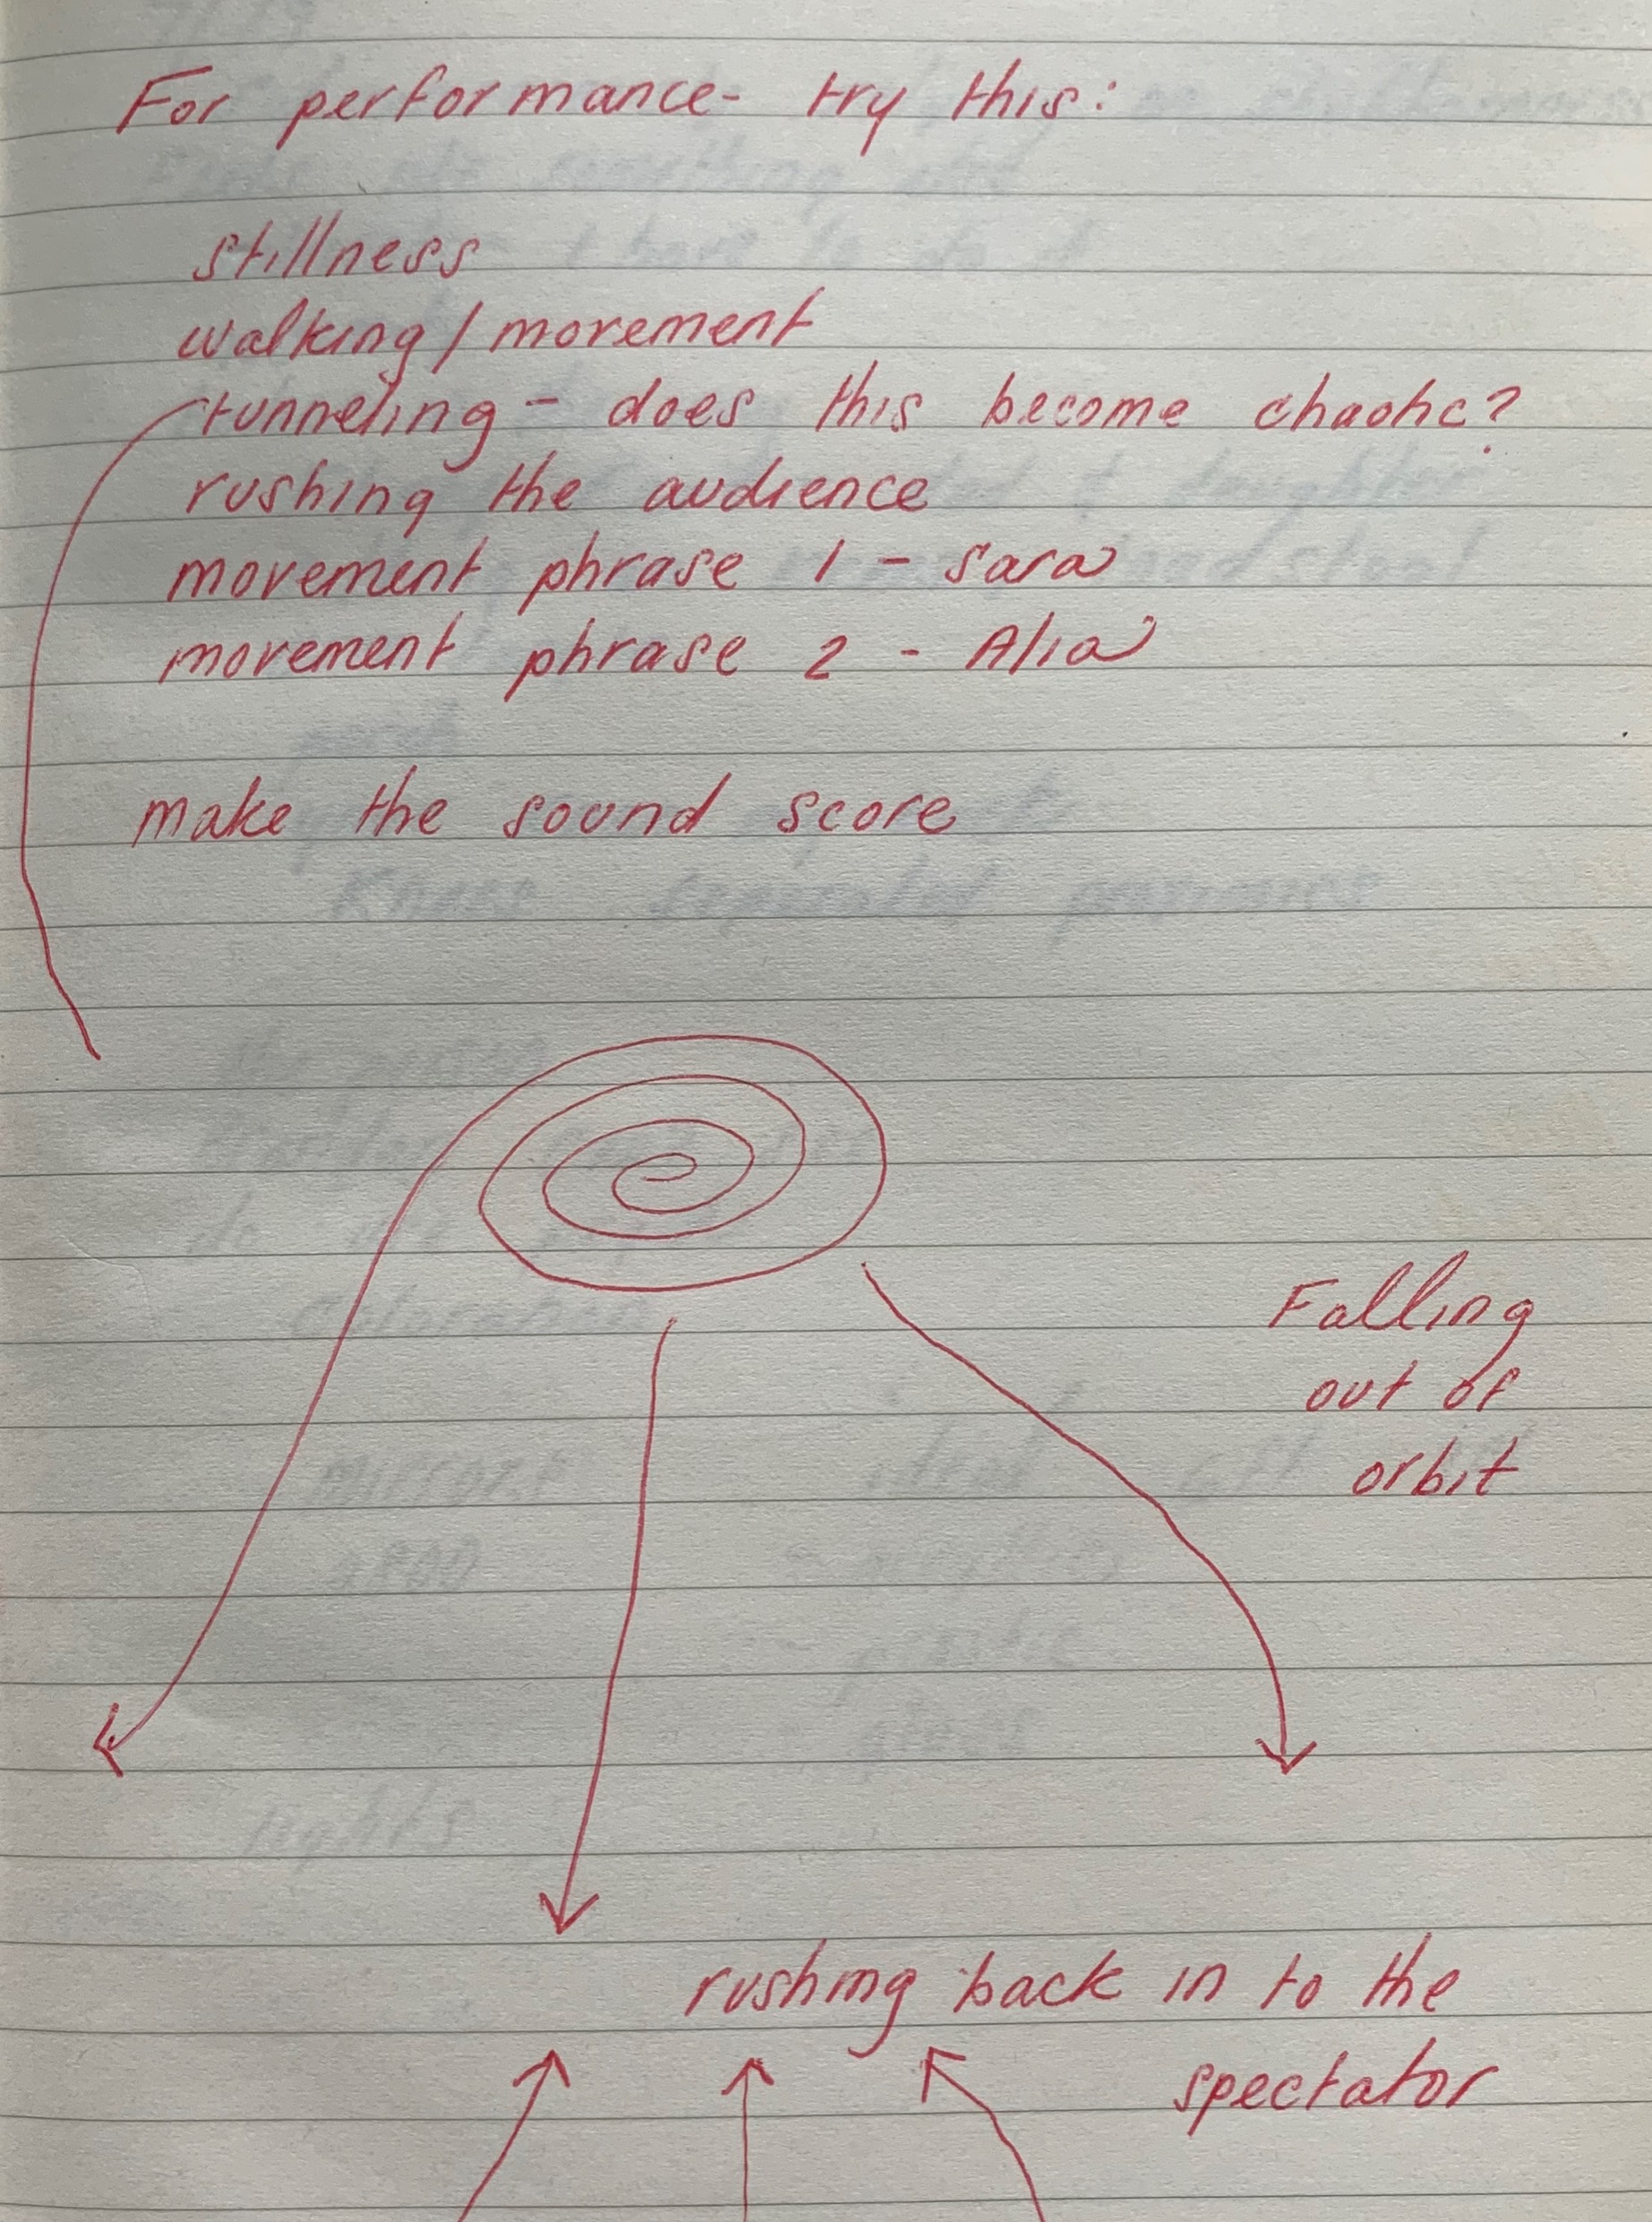 For performance - try this:
stillness
walking / movement
tunneling - does this become chaotic?
rushing the audience
movement phrase 1 - Sara
movement phrase 2 - Alia
make the sound score
Falling
out of
orbit
rushing back in to the
spectator